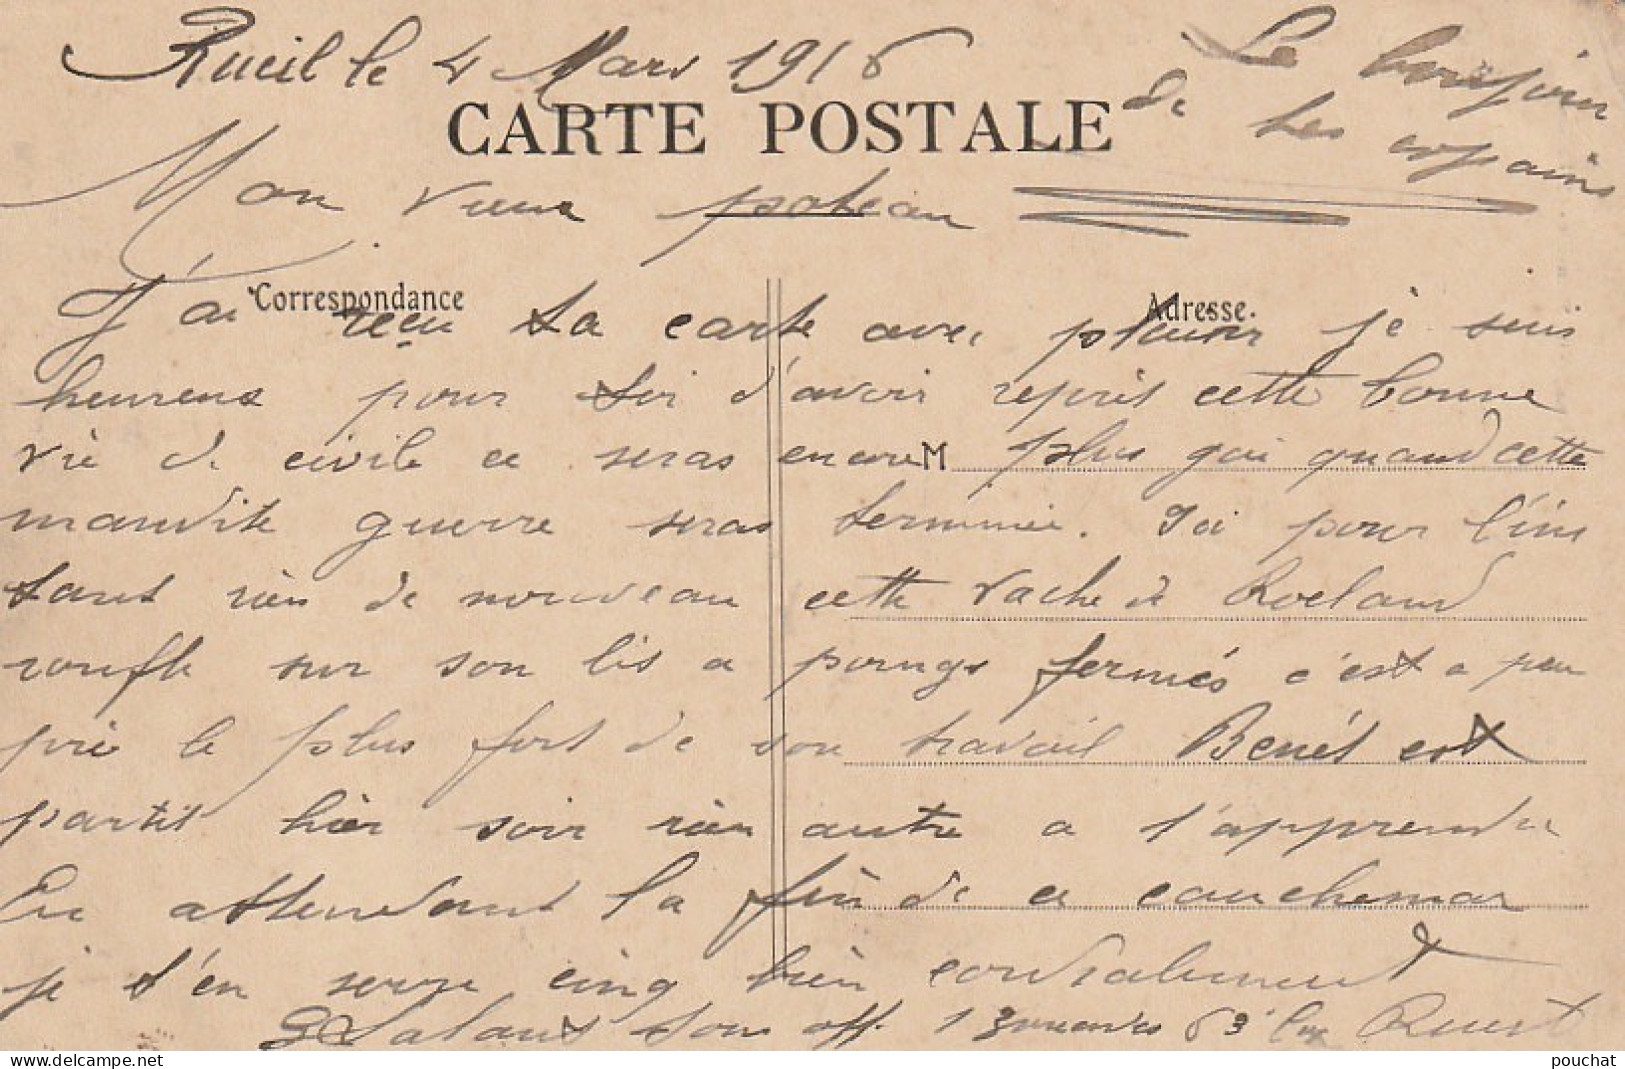 Rueil le 4 Mars 1916
Le bonjour
de les copains
CARTE POSTALE
Mon vieux poteau
Correspondance
Adresse
J'ai reçu ta carte avec plaisir je suis
heureus pour toi d'avoir repris cette bonne
vie de civile ce seras encore plus gai quand cette
M
maudite guerre seras terminée. J'ai pour l'ins
tant rien de nouveau cette vache de Roeland
roufle sur son lis a poings fermés c'est a peu
prè le plus fort de son travail Benét est
partit hier soir rien autre a t'apprendre
En attendant la fin de ce cauchemar
je t'en serre cinq bien cordialement
sous off. 13
pouchat